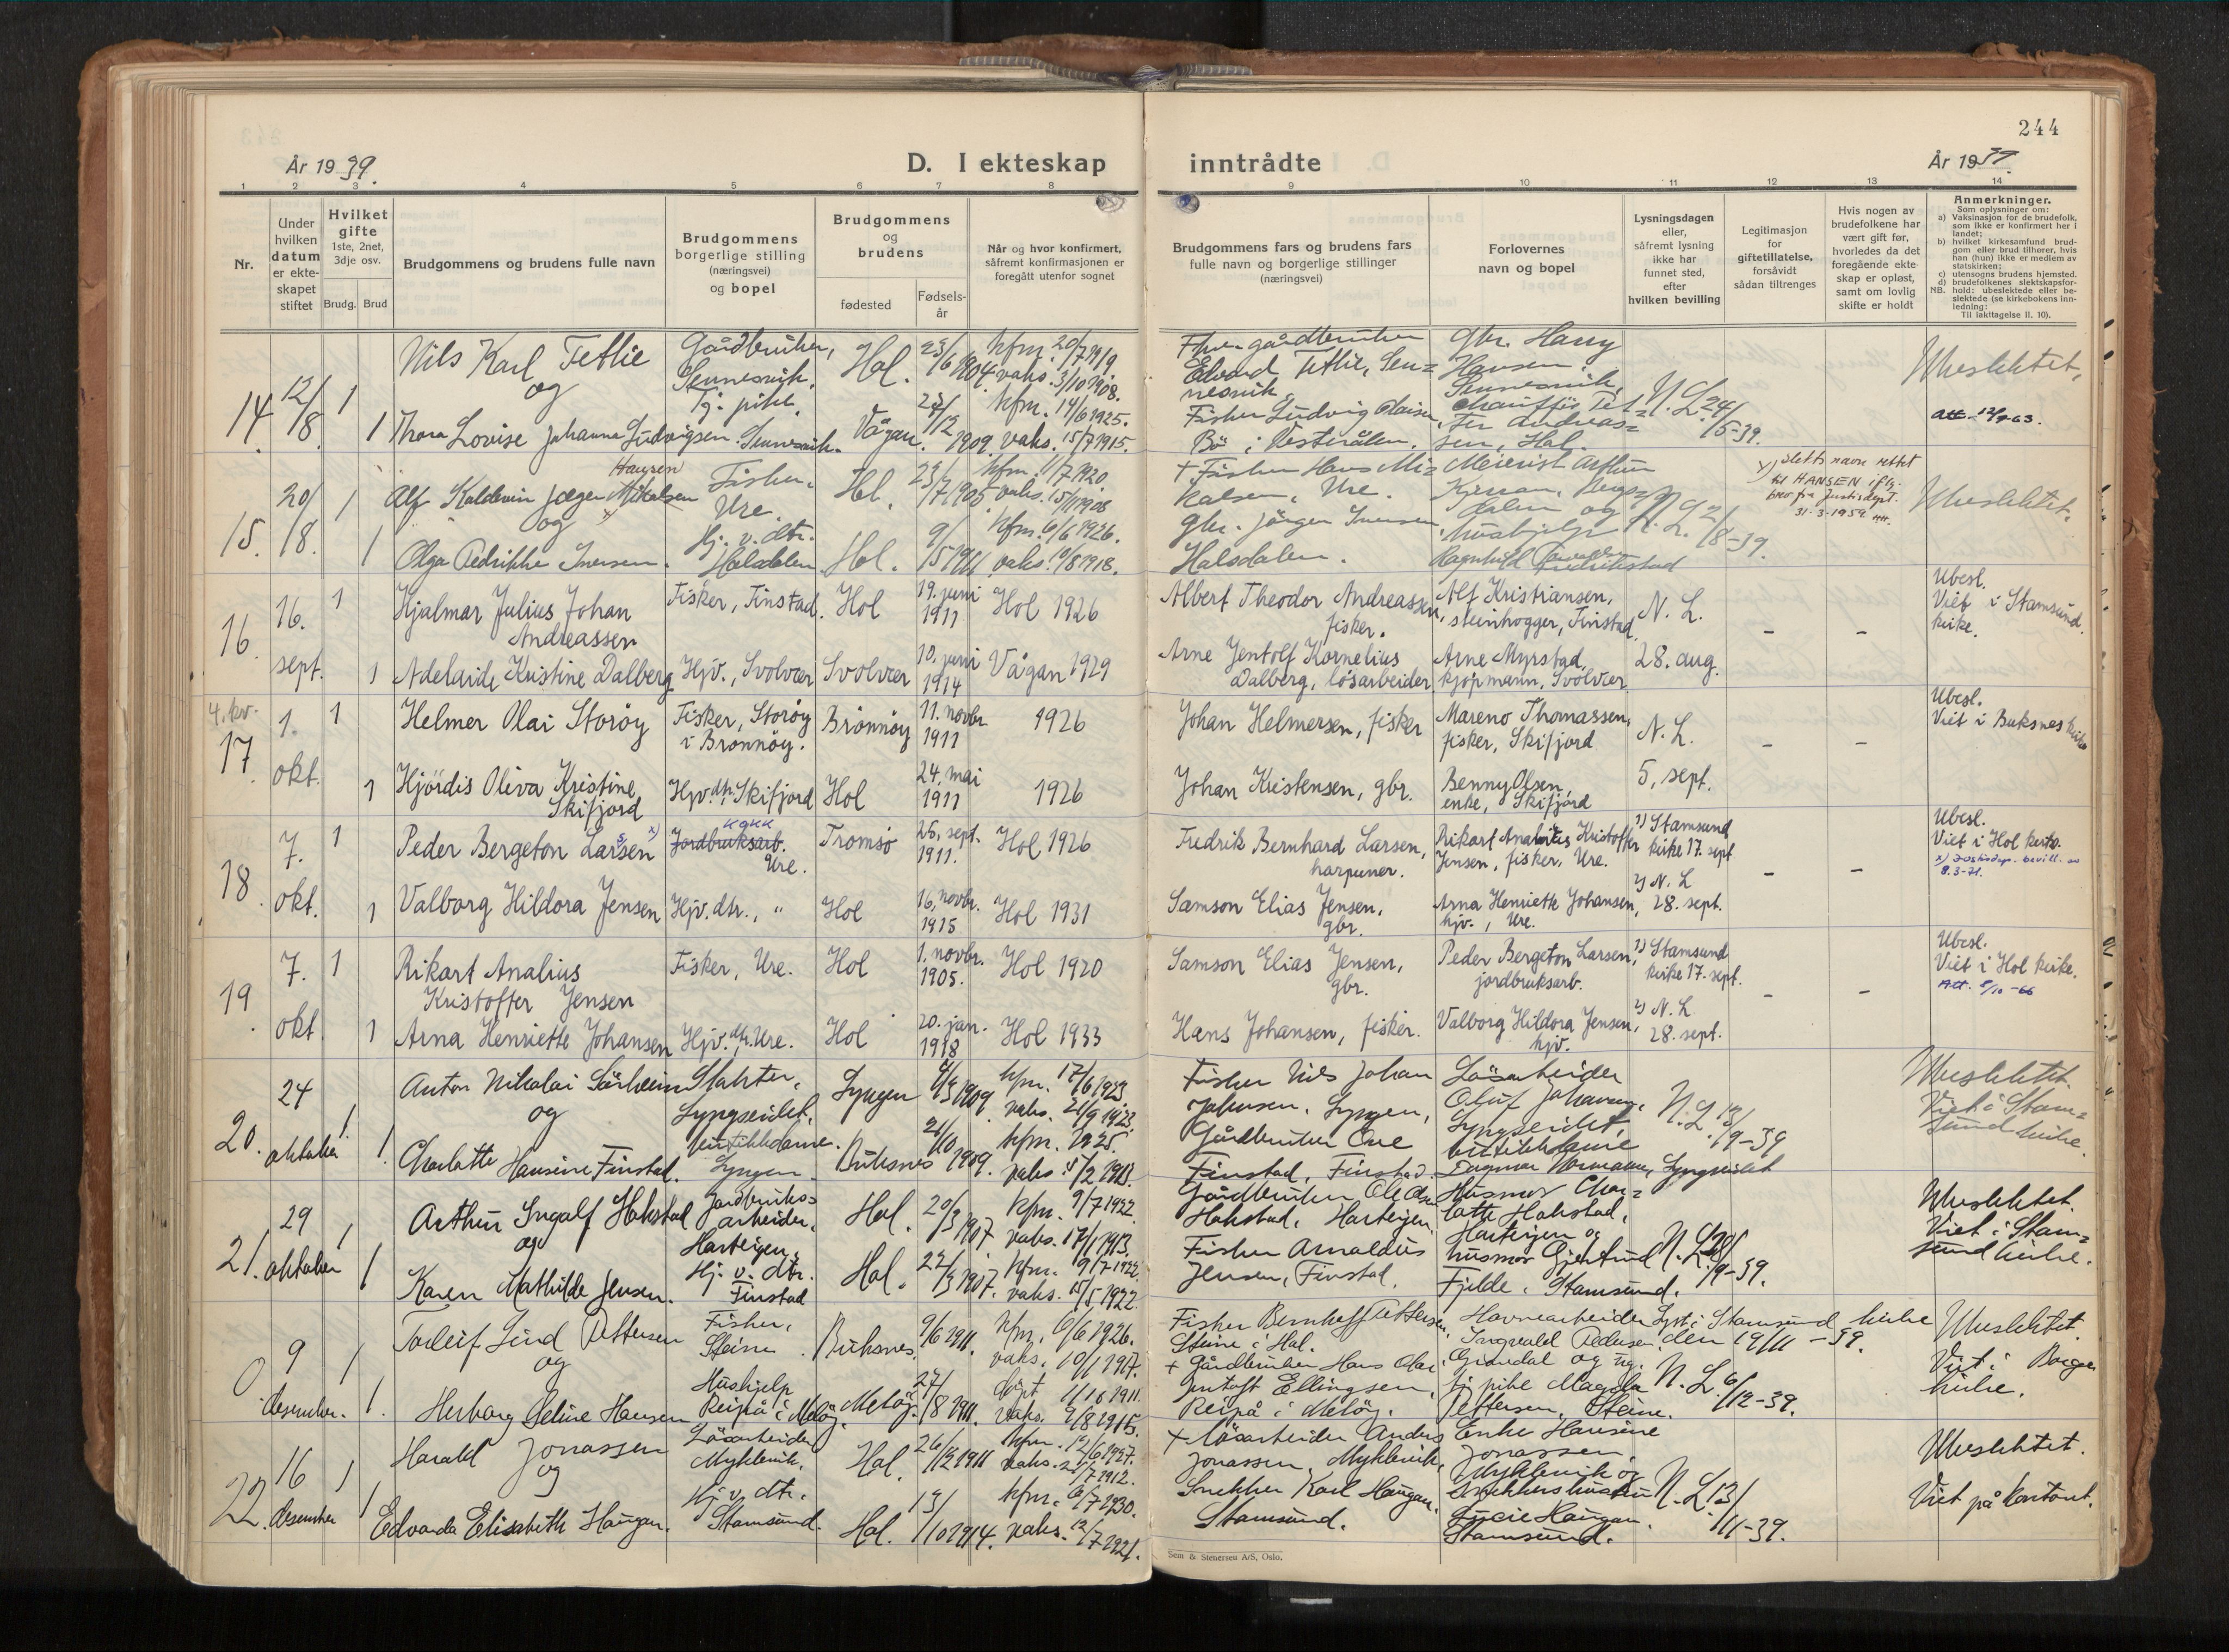 244
År 1939.
D. I ekteskap inntrådte
År 1939.
1 2 3 4 5 6 7 8 9 10 11 12 13 14
Nr.
Under hvilken datum er ekteskapet stiftet
Hvilket gifte
1ste, 2net, 3dje osv.
Brudg. Brud
Brudgommens og brudens fulle navn
Brudgommens borgerlige stilling (næringsvei) og bopel
Brudgommens og brudens
fødested
Fødselsår
Når og hvor konfirmert, såfremt konfirmasjonen er foregått utenfor sognet
Brudgommens fars og brudens fars fulle navn og borgerlige stillinger (næringsvei)
Forlovernes navn og bopel
Lysningsdagen eller, såfremt lysning ikke har funnet sted, efter hvilken bevilling
Legitimasjon for giftetillatelse, forsåvidt sådan tiltrenges
Hvis nogen av brudefolkene har vært gift før, hvorledes da det foregående ekteskap er opløst, samt om lovlig skifte er holdt
Anmerkninger.
Som oplysninger om:
a) Vaksinasjon for de brudefolk, som ikke er konfirmert her i landet;
b) hvilket kirkesamfund brudgom eller brud tilhører, hvis han (hun) ikke er medlem av statskirken;
c) utensogns brudens hjemsted.
d) brudefolkenes slektskapsforhold: ubeslektede eller beslektede (se kirkebokens innledning:
NB.
Til iakttagelse II. 10).
14. 12/8 1 Nils Karl Tetlie Gårdbruker, Sennesvik. Hol. 23/6 1904. kfm. 20/7 1919 vaks. 3/10 1908.
og
1 Thora Lovise Johanne Ludvigsen. Tj. pike. Sennesvik. Vågan. 1909. kfm. 14/6 1925. vaks. 15/7 1915.
gårdbruker Edvard Tetlie, Sennesvik.
gbr. Harry Hansen, Sennesvik,
Fisker Ludvig Olaisen, Bö i Vesterålen.
Andreassen, Hol.
N. L. 24/5-39.
Ubeslektet,
15. 20/8. 1 Alf Koldevin Jæger Mikalsen Hansen Fisker. Ure. Hol. 23/7 1905. kfm. 11/7 1920. vaks. 15/11 1908
og
1 Olga Pedrikke Iversen. Hj. v. dtr. Holsdalen Hol. 9/5 1911 kfm. 6/6 1926. vaks. 10/8 1918.
+ Fisker Hans Mikalsen, Ure.
Meierist Arthur
gbr. Jörgen Iversen, Holsdalen.
og hushjelp Ragnhild
N. L. 2/8-39.
x) sletts navn rettet til HANSEN iflg. brev fra Justisdept. 31-3-1959
Ubeslektet.
16. 16. sept. 1 Hjalmar Julius Johan Andreassen Fisker, Finstad. Hol 19. juni 1911 Hol 1926
1 Adelaide Kristine Dalberg Hjv., Svolvær Svolvær 10. juni 1914 Vågan 1929
Albert Theodor Andreassen, fisker.
Alf Kristiansen, steinhogger, Finstad.
Arne Jentolf Kornelius Dalberg, lösarbeider
Arne Myrstad, kjöpmann, Svolvær.
N. L. 28. aug.
- -
Ubesl. Viet i Stamsund kirke.
4. kv.
17. 1. okt. 1 Helmer Olai Storöy Fisker, Storöy i Brönnöy. Brönnöy 11. novbr 1911 1926
1 Hjördis Oliva Kristine Skifjord Hjv. dtr., Skifjord Hol 24. mai 1911 1926
Johan Helmersen, fisker
Mareno Thomassen, fisker, Skifjord
Johan Kristensen, gbr.
Benny Olsen, enke, Skifjord
N. L. 5. sept.
- -
Ubesl. Viet i Buksnes kirke
18. 7. okt. 1 Peder Bergeton Larsen x) Jordbruksarb. KOKK Ure. Tromsö 25. sept. 1911. Hol 1926
1 Valborg Hildora Jensen Hjv. dtr., " Hol 16. novbr. 1915 Hol 1931
Fredrik Bernhard Larsen, harpuner.
Rikart Analius Kristoffer Jensen, fisker, Ure.
Samson Elias Jensen, gbr.
Arna Henriette Johansen, hjv., Ure.
1) Stamsund kirke 17. sept
2) N. L 28. sept.
- -
Ubesl. Viet i Hol kirke.
x) Justisdep. bevill. av 8.3-21.
19. 7. okt. 1 Rikart Analius Kristoffer Jensen Fisker, Ure. Hol 1. novbr. 1905. Hol 1920
1 Arna Henriette Johansen Hjv. dtr. Ure. Hol 20. jan. 1918 Hol 1933
Samson Elias Jensen, gbr.
Peder Bergeton Larsen, jordbruksarb.
Hans Johansen, fisker.
Valborg Hildora Jensen, hjv.
1) Stamsund kirke 17. sept.
2) N. L. 28. sept.
- -
Ubesl. Viet i Hol kirke.
Att. 5/10-66
20. 24 oktober 1 Anton Nikolai Slakter, Lyngseidet. Lyngen 1909. kfm. 17/6 1923
og
1. Charlotte Hansine Finstad. butikkdame. Lyngen Buksnes 1909. kfm. 1925. vaks.
Fisker Nils Johan Johansen, Lyngen,
Lösarbeider Oluf Johansen, Lyngseidet,
Gårdbruker Ove Finstad, Finstad.
butikkdame Dagmar Normann, Lyngseidet
N. L. 13/9-39
Ubeslektet. Viet i Stamsund kirke.
21. 29 oktober 1 Arthur Ingolf Hokstad Jordbruksarbeider, Harteigen. Hol. 20/3 1907 kfm. 9/7 1922 vaks. 17/1 1913.
og
1 Karen Mathilde Jensen. Hj. v. dtr. Finstad Hol. 22/3 1907. kfm. 9/7 1922. vaks. 15/5 1922.
Gårdbruker Ole Olsen Hokstad, Harteigen.
Husmor Charlotte Hokstad, Harteigen og
Fisker Arnoldus Jensen, Finstad.
husmor Gjertrud Fjelde, Stamsund.
N. L. 28/9-39.
Ubeslektet. Viet i Stamsund kirke.
0 9 desember. 1 Torleif Lind Pettersen Fisker, Steine. Buksnes. 9/6 1911. kfm. 6/6 1926. vaks. 10/1 1917.
og
1. Herborg Seline Hansen Hushjelp Reipå i Melöy. Melöy. 27/8 1911. döpt 1/10 1911. vaks. 9/8 1915.
Fisker Bernhoff Pettersen, Steine i Hol.
Havnearbeider Ingvald Pedersen,
Lyst i Stamsund kirke den 19/11-39.
+ Gårdbruker Hans Olai Jentoft Ellingsen, Reipå i Melöy.
tj. pike Magda Pettersen, Steine.
N. L. 6/12-39.
Ubeslektet. Viet i Borge kirke.
22. 16 desember 1 Harald Jonassen Lösarbeider Myklevik. Hol. 26/12 1911 kfm. 12/6 1927. vaks. 1912.
og
1 Edvarda Elisabeth Haugan. Hj. v. dtr. Stamsund. Hol. 13/10 1914. kfm. 6/7 1930. vaks. 12/7 1921.
+ lösarbeider Anders Jonassen, Myklevik.
Enke Hansine Jonassen, Myklevik og
Snekker Karl Haugan. Stamsund.
snekkershustru Lucie Haugan. Stamsund.
N. L. 13/11-39.
Ubeslektet.
Viet på kontoret.
Sem & Stenersen A/S, Oslo.